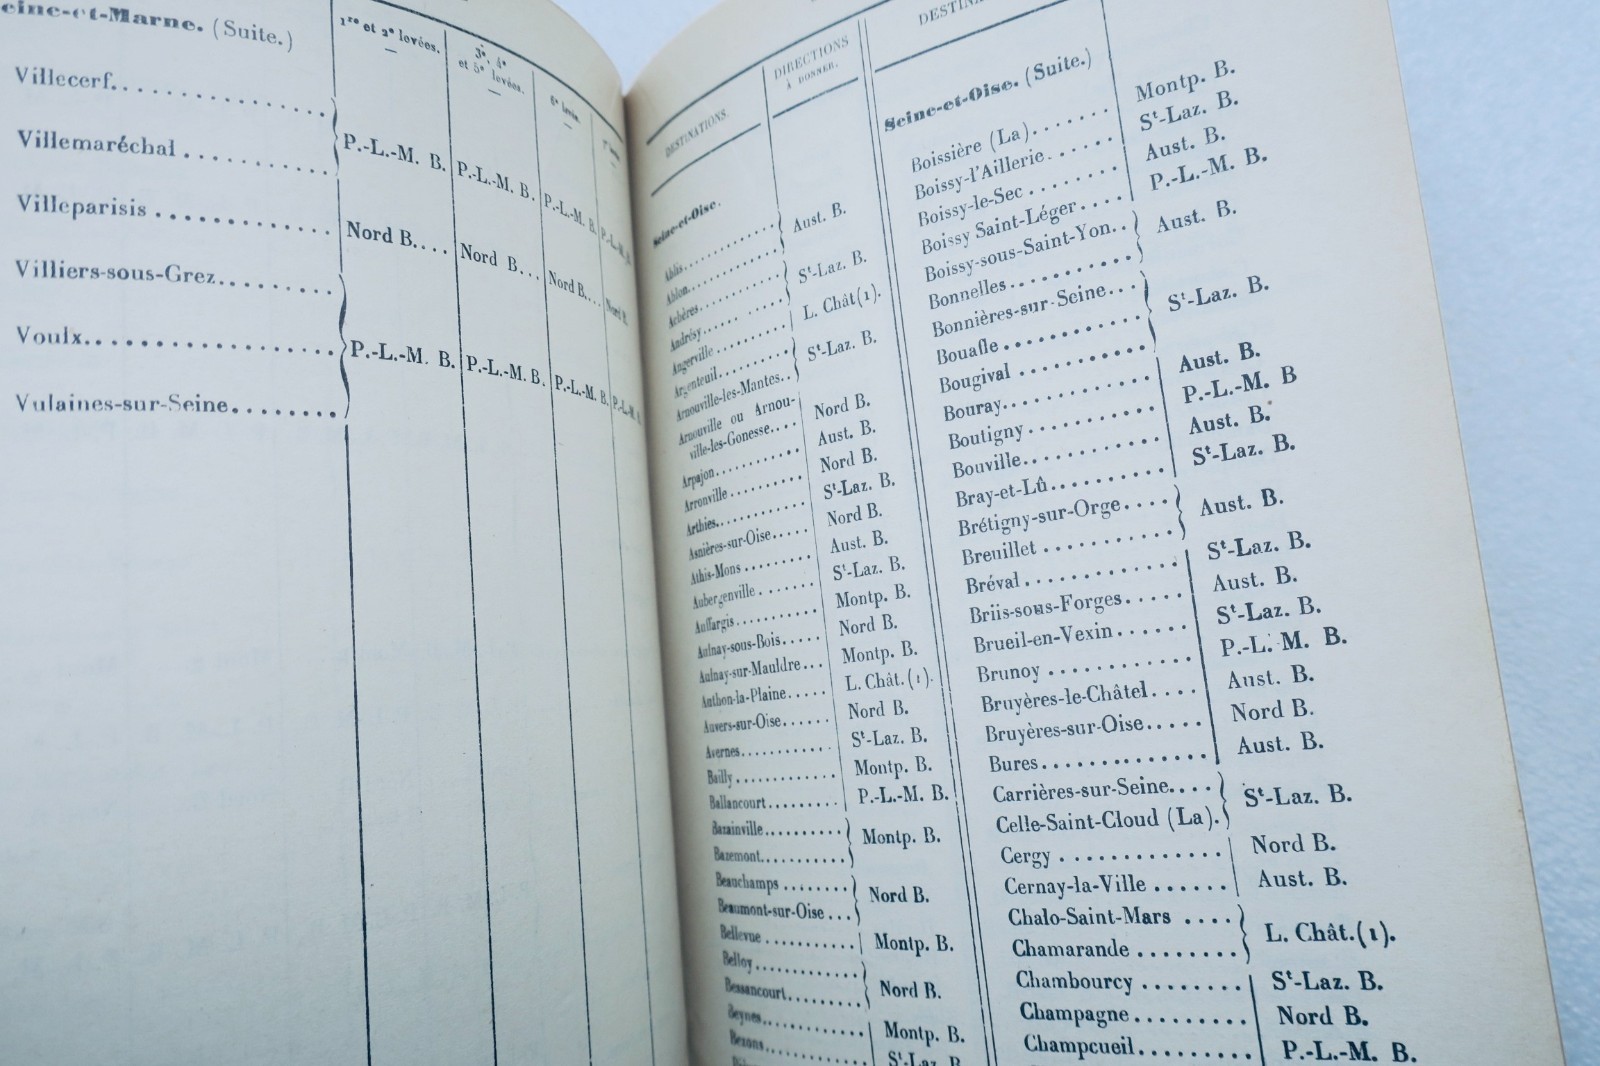 Seine-et-Marne. (Suite.)
1re et 2e levées.
3e, 4e
et 5e levées.
6e levée.
Villecerf
Villemaréchal
P.-L.-M. B. P.-L.-M. B. P.-L.-M. B. P.-L.-M. B.
Villeparisis
Nord B.... Nord B... Nord B.... Nord B.
Villiers-sous-Grez
Voulx
P.-L.-M. B. P.-L.-M. B. P.-L.-M. B. P.-L.-M. B.
Vulaines-sur-Seine
DESTINATIONS.
DIRECTIONS
À DONNER.
Seine-et-Oise.
Ablis
Ablon
Aust. B.
Achères
Andrésy
St-Laz. B.
Angerville
L. Chât(1).
Argenteuil
Arnouville-les-Mantes..
St-Laz. B.
Arnouville ou Arnou-
ville-les-Gonesse.... Nord B.
Arpajon Aust. B.
Arronville Nord B.
Arthies St-Laz. B.
Asnières-sur-Oise Nord B.
Athis-Mons Aust. B.
Aubergenville St-Laz. B.
Auffargis Montp. B.
Aulnay-sous-Bois Nord B.
Aulnay-sur-Mauldre Montp. B.
Authon-la-Plaine L. Chât.(1).
Auvers-sur-Oise Nord B.
Avernes St-Laz. B.
Bailly Montp. B.
Ballancourt P.-L.-M. B.
Bazainville
Bazemont
Montp. B.
Beauchamps
Beaumont-sur-Oise
Nord B.
Bellevue Montp. B.
Belloy
Bessancourt
Nord B.
Beynes Montp. B.
Bezons St-Laz. B.
Seine-et-Oise. (Suite.)
Boissière (La) Montp. B.
Boissy-l'Aillerie St-Laz. B.
Boissy-le-Sec Aust. B.
Boissy Saint-Léger P.-L.-M. B.
Boissy-sous-Saint-Yon..
Bonnelles
Aust. B.
Bonnières-sur-Seine
Bouafle
Bougival
St-Laz. B.
Bouray Aust. B.
Boutigny P.-L.-M. B
Bouville Aust. B.
Bray-et-Lû St-Laz. B.
Brétigny-sur-Orge
Breuillet
Aust. B.
Bréval St-Laz. B.
Briis-sous-Forges Aust. B.
Brueil-en-Vexin St-Laz. B.
Brunoy P.-L.-M. B.
Bruyères-le-Châtel Aust. B.
Bruyères-sur-Oise Nord B.
Bures Aust. B.
Carrières-sur-Seine
Celle-Saint-Cloud (La).
St-Laz. B.
Cergy Nord B.
Cernay-la-Ville Aust. B.
Chalo-Saint-Mars
Chamarande
L. Chât.(1).
Chambourcy St-Laz. B.
Champagne Nord B.
Champcueil P.-L.-M. B.